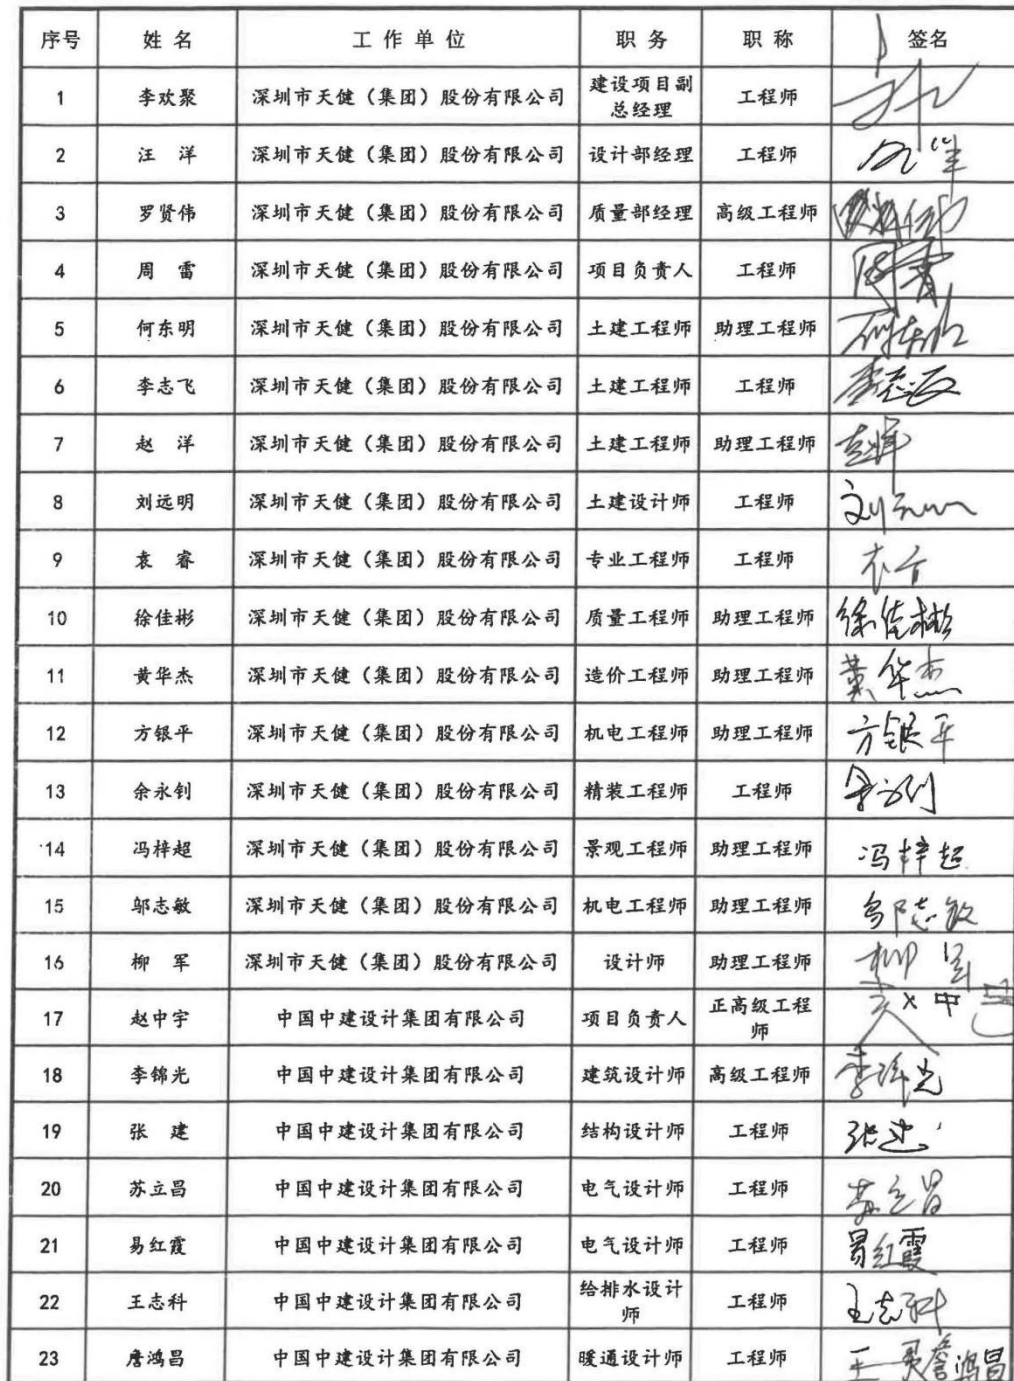 序号 姓名 工作单位 职务 职称 签名
1 李欢聚 深圳市天健（集团）股份有限公司 建设项目副总经理 工程师
2 汪洋 深圳市天健（集团）股份有限公司 设计部经理 工程师
3 罗贤伟 深圳市天健（集团）股份有限公司 质量部经理 高级工程师
4 周雷 深圳市天健（集团）股份有限公司 项目负责人 工程师 周雷
5 何东明 深圳市天健（集团）股份有限公司 土建工程师 助理工程师 何东明
6 李志飞 深圳市天健（集团）股份有限公司 土建工程师 工程师 李志飞
7 赵洋 深圳市天健（集团）股份有限公司 土建工程师 助理工程师 赵洋
8 刘远明 深圳市天健（集团）股份有限公司 土建设计师 工程师
9 袁睿 深圳市天健（集团）股份有限公司 专业工程师 工程师
10 徐佳彬 深圳市天健（集团）股份有限公司 质量工程师 助理工程师 徐佳彬
11 黄华杰 深圳市天健（集团）股份有限公司 造价工程师 助理工程师 黄华杰
12 方银平 深圳市天健（集团）股份有限公司 机电工程师 助理工程师 方银平
13 余永钊 深圳市天健（集团）股份有限公司 精装工程师 工程师 余永钊
14 冯梓超 深圳市天健（集团）股份有限公司 景观工程师 助理工程师 冯梓超
15 邬志敏 深圳市天健（集团）股份有限公司 机电工程师 助理工程师 邬志敏
16 柳军 深圳市天健（集团）股份有限公司 设计师 助理工程师 柳军
17 赵中宇 中国中建设计集团有限公司 项目负责人 正高级工程师 赵中宇
18 李锦光 中国中建设计集团有限公司 建筑设计师 高级工程师 李锦光
19 张建 中国中建设计集团有限公司 结构设计师 工程师 张建
20 苏立昌 中国中建设计集团有限公司 电气设计师 工程师 苏立昌
21 易红霞 中国中建设计集团有限公司 电气设计师 工程师 易红霞
22 王志科 中国中建设计集团有限公司 给排水设计师 工程师 王志科
23 詹鸿昌 中国中建设计集团有限公司 暖通设计师 工程师 詹鸿昌